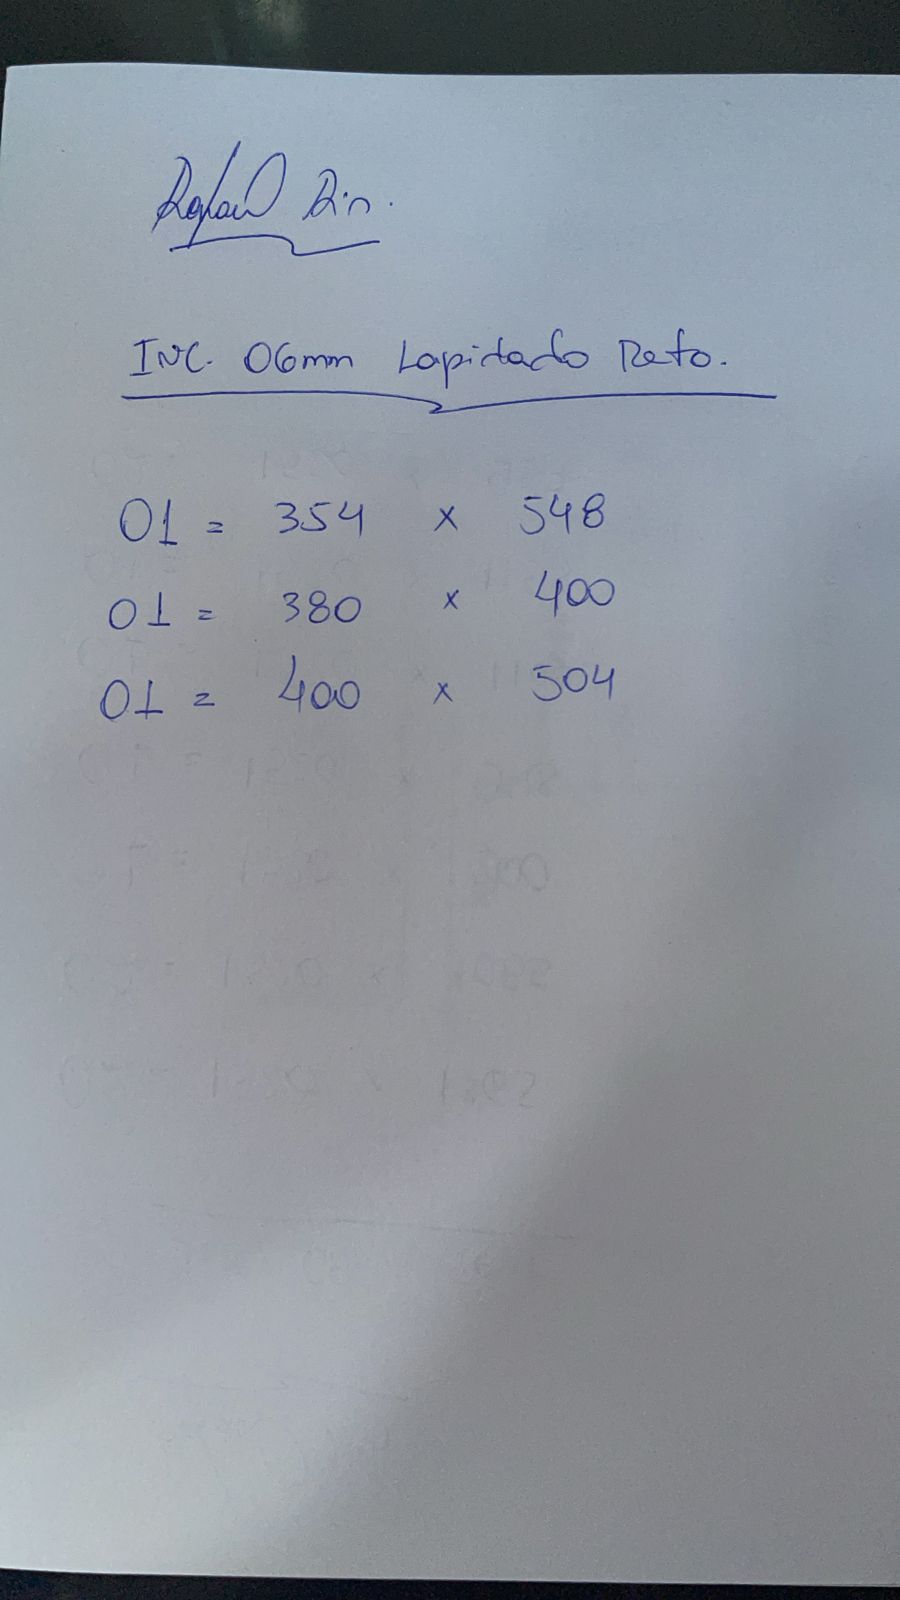 Rafael Rin.
INC. 06mm Lapidado Reto.
01 = 354 x 548
01 = 380 x 400
01 = 400 x 504